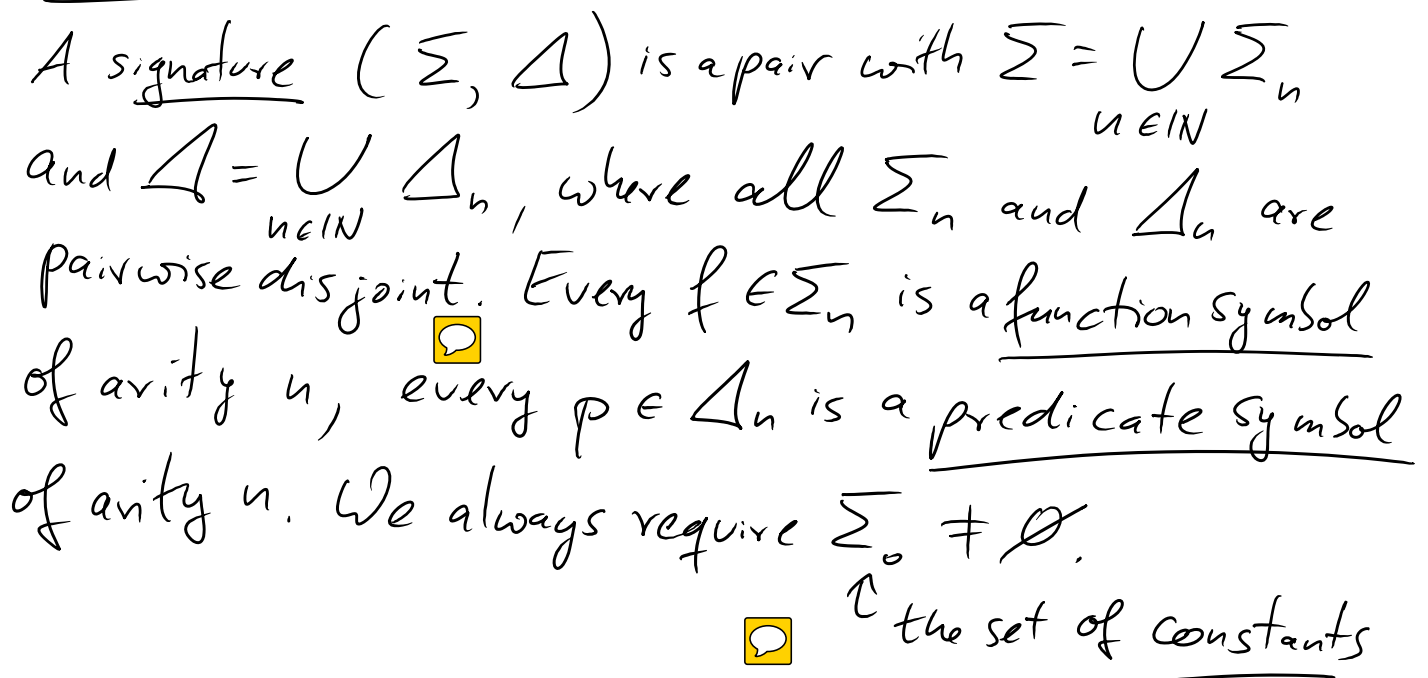 A signature (Σ, Δ) is a pair with Σ = ⋃ Σₙ
n∈ℕ
and Δ = ⋃ Δₙ, where all Σₙ and Δₙ are
n∈ℕ
pairwise disjoint. Every f ∈ Σₙ is a function symbol
of arity n, every p ∈ Δₙ is a predicate symbol
of arity n. We always require Σ₀ ≠ ∅.
↑ the set of constants